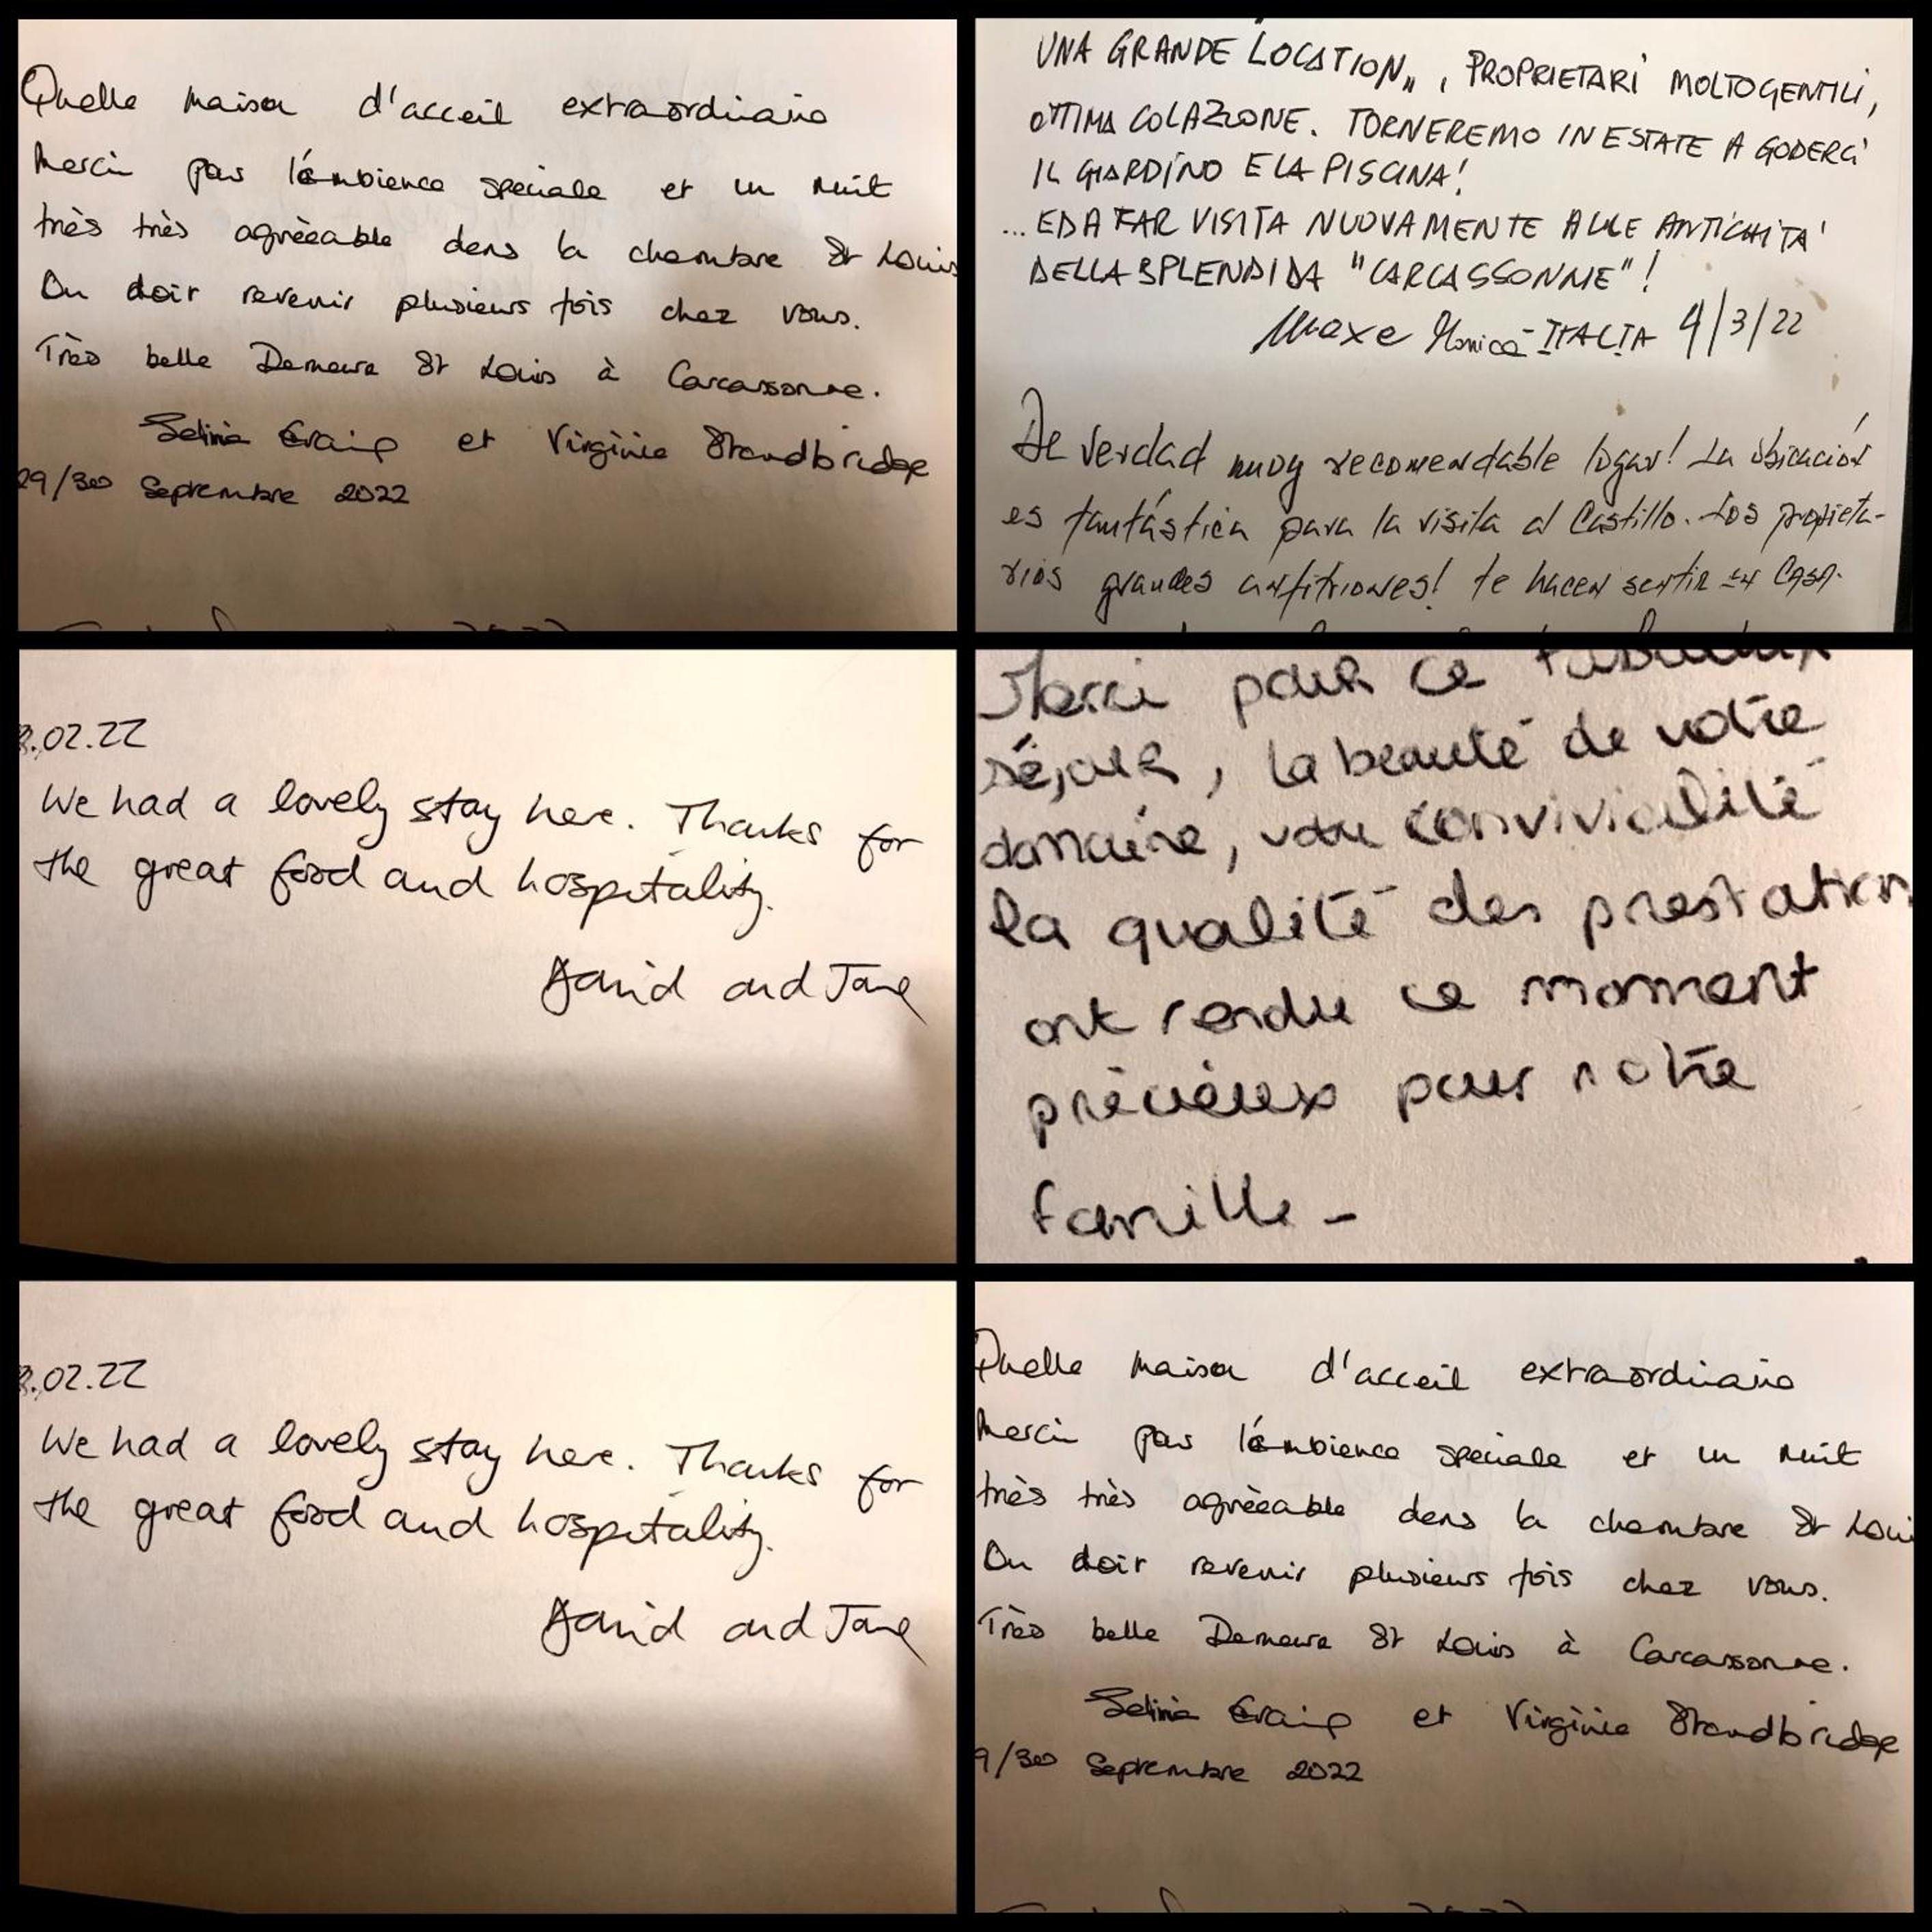 Quelle maison d'acceil extraordinaire
Merci pas l'émbience speciale et un nuit
très très agrèeable dens la chambre St Louis
On doir revenir plusieurs fois chez vous.
Très belle Demeure St Louis à Carcassonne.
Selina Craig et Virginie Standbridge
29/30 Septembre 2022
UNA GRANDE LOCATION", PROPRIETARI MOLTO GENTILI,
OTTIMA COLAZIONE. TORNEREMO IN ESTATE A GODERCI
IL GIARDINO E LA PISCINA!
...ED A FAR VISITA NUOVAMENTE ALLE ANTICHITA'
DELLA SPLENDIDA "CARCASSONNE"!
Maxe Monica - ITALIA 4/3/22
De verdad muy recomendable lugar! La ubicación
es fantástica para la visita al Castillo. Los propieta-
rios grandes anfitriones! te hacen sentir en Casa.
.02.22
We had a lovely stay here. Thanks for
the great food and hospitality.
David and Jane
Merci pour ce fabuleux
séjour, la beauté de votre
domaine, votre convivialité
la qualité des prestations
ont rendu ce moment
précieux pour notre
famille -
.02.22
We had a lovely stay here. Thanks for
the great food and hospitality.
David and Jane
Quelle maison d'acceil extraordinaire
Merci pas l'émbience speciale et un nuit
très très agrèeable dens la chambre St Loui
On doir revenir plusieurs fois chez vous.
Très belle Demeure St Louis à Carcassonne.
Selina Craig et Virginie Standbridge
9/30 Septembre 2022